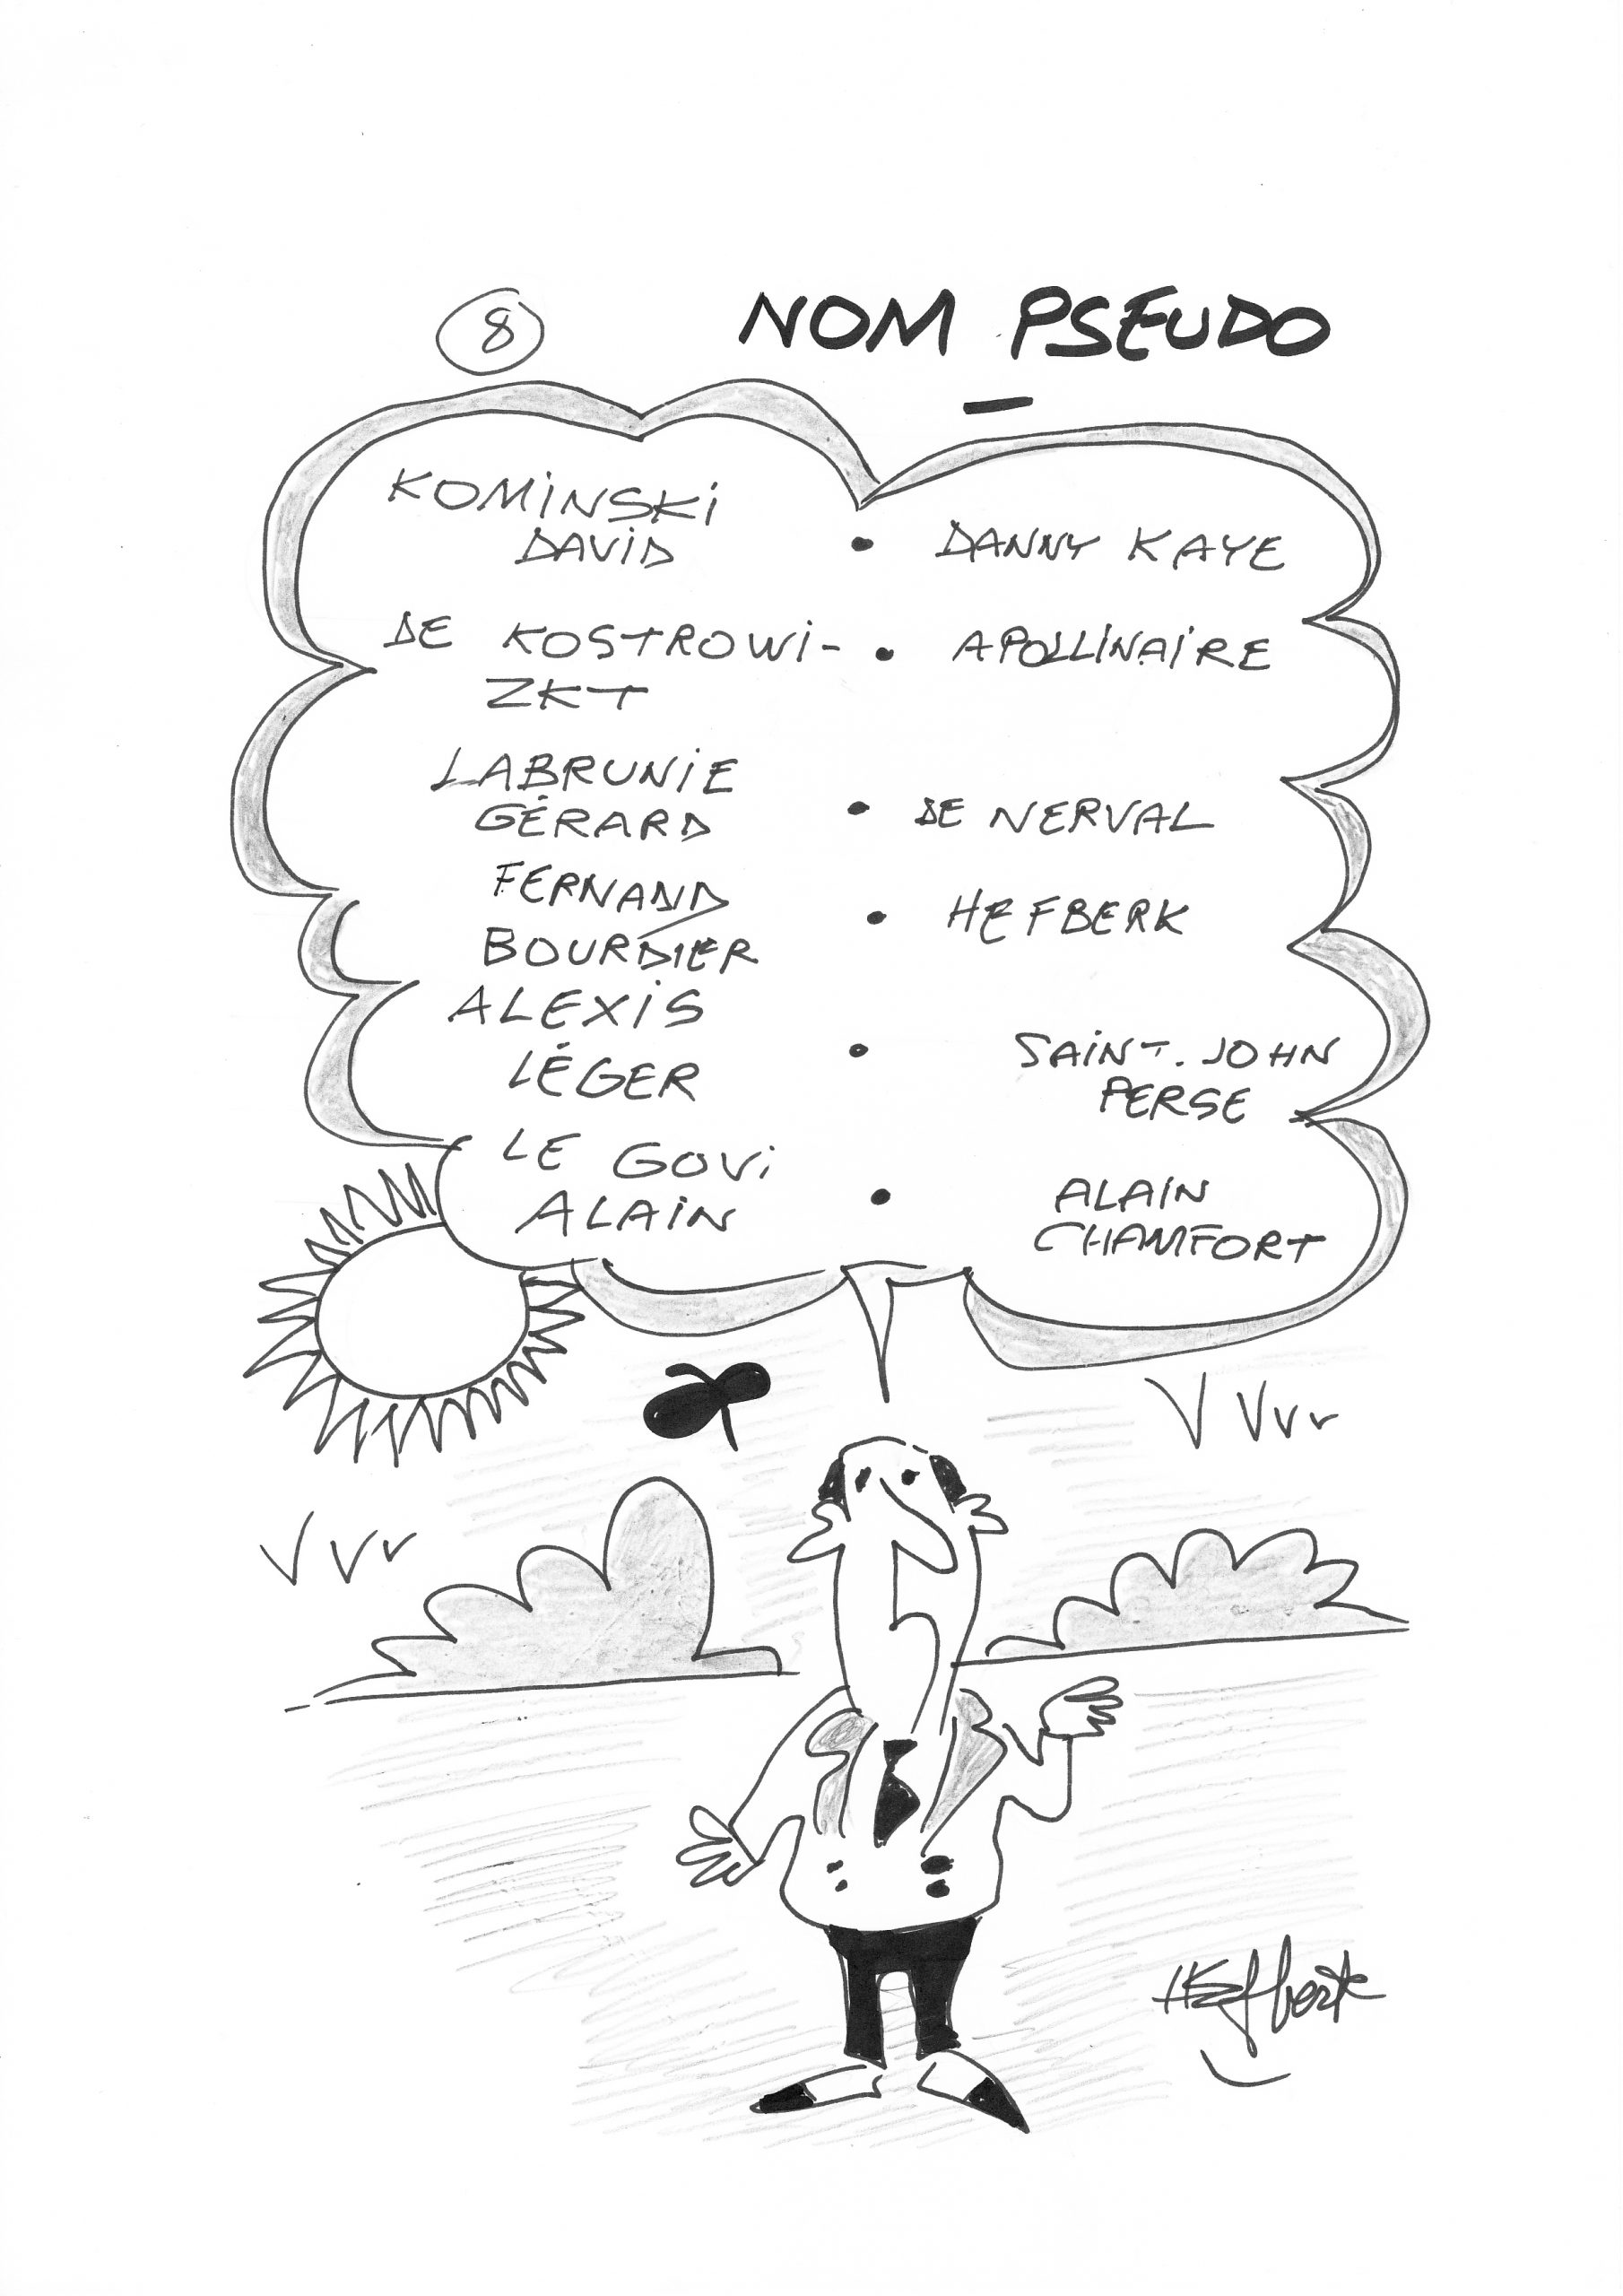 8 NOM PSEUDO
KOMINSKI
DAVID • DANNY KAYE
DE KOSTROWI- • APOLLINAIRE
ZKT
LABRUNIE
GÉRARD • DE NERVAL
FERNAND
BOURDIER • HEFBERK
ALEXIS
LÉGER • SAINT. JOHN
PERSE
LE GOVI
ALAIN • ALAIN
CHAMFORT
Hefberk